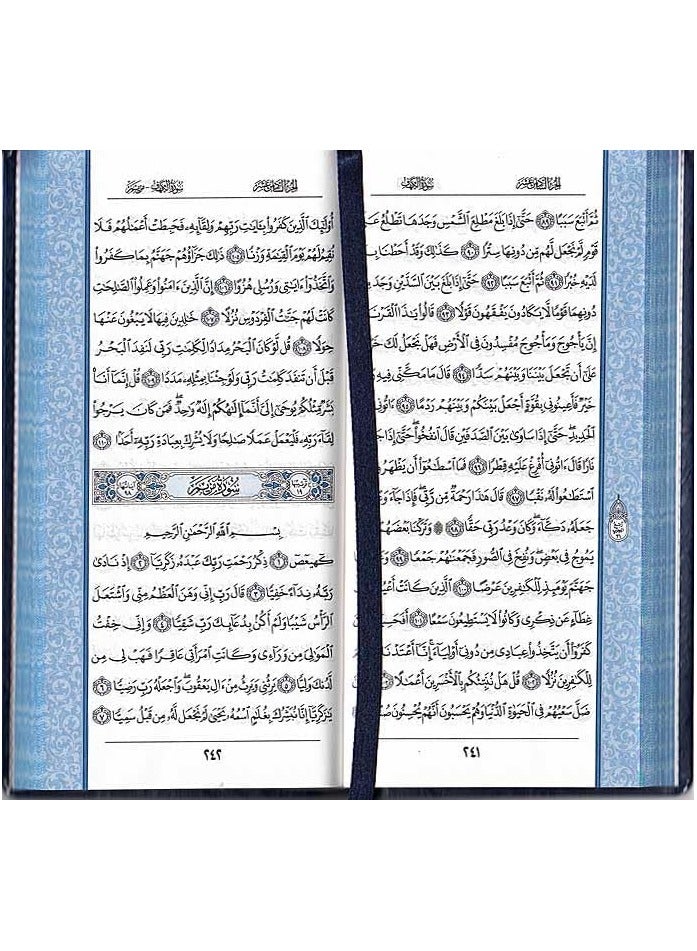 الجزء السادس عشر
سورة الكهف
ثُمَّ أَتْبَعَ سَبَبًا ﴿٨٩﴾ حَتَّىٰ إِذَا بَلَغَ مَطْلِعَ ٱلشَّمْسِ وَجَدَهَا تَطْلُعُ
قَوْمٍ لَّمْ نَجْعَل لَّهُم مِّن دُونِهَا سِتْرًا ﴿٩٠﴾ كَذَٰلِكَ وَقَدْ أَحَطْنَا
لَدَيْهِ خُبْرًا ﴿٩١﴾ ثُمَّ أَتْبَعَ سَبَبًا ﴿٩٢﴾ حَتَّىٰ إِذَا بَلَغَ بَيْنَ ٱلسَّدَّيْنِ وَجَدَ
دُونِهِمَا قَوْمًا لَّا يَكَادُونَ يَفْقَهُونَ قَوْلًا ﴿٩٣﴾ قَالُوا۟ يَٰذَا
إِنَّ يَأْجُوجَ وَمَأْجُوجَ مُفْسِدُونَ فِى ٱلْأَرْضِ فَهَلْ نَجْعَلُ لَكَ
عَلَىٰٓ أَن تَجْعَلَ بَيْنَنَا وَبَيْنَهُمْ سَدًّا ﴿٩٤﴾ قَالَ مَا مَكَّنِّى فِيهِ
خَيْرٌ فَأَعِينُونِى بِقُوَّةٍ أَجْعَلْ بَيْنَكُمْ وَبَيْنَهُمْ رَدْمًا ﴿٩٥﴾ ءَاتُونِى
ٱلْحَدِيدِ ۖ حَتَّىٰٓ إِذَا سَاوَىٰ بَيْنَ ٱلصَّدَفَيْنِ قَالَ ٱنفُخُوا۟ ۖ حَتَّىٰٓ إِذَا
نَارًا قَالَ ءَاتُونِىٓ أُفْرِغْ عَلَيْهِ قِطْرًا ﴿٩٦﴾ فَمَا ٱسْطَٰعُوٓا۟ أَن
ٱسْتَطَٰعُوا۟ لَهُۥ نَقْبًا ﴿٩٧﴾ قَالَ هَٰذَا رَحْمَةٌ مِّن رَّبِّى ۖ فَإِذَا جَآءَ
جَعَلَهُۥ دَكَّآءَ ۖ وَكَانَ وَعْدُ رَبِّى حَقًّا ﴿٩٨﴾ ۞ وَتَرَكْنَا بَعْضَهُمْ
يَمُوجُ فِى بَعْضٍ ۖ وَنُفِخَ فِى ٱلصُّورِ فَجَمَعْنَٰهُمْ جَمْعًا ﴿٩٩﴾
جَهَنَّمَ يَوْمَئِذٍ لِّلْكَٰفِرِينَ عَرْضًا ﴿١٠٠﴾ ٱلَّذِينَ كَانَتْ
غِطَآءٍ عَن ذِكْرِى وَكَانُوا۟ لَا يَسْتَطِيعُونَ سَمْعًا ﴿١٠١﴾
كَفَرُوٓا۟ أَن يَتَّخِذُوا۟ عِبَادِى مِن دُونِىٓ أَوْلِيَآءَ ۚ إِنَّآ أَعْتَدْنَا
لِلْكَٰفِرِينَ نُزُلًا ﴿١٠٢﴾ قُلْ هَلْ نُنَبِّئُكُم بِٱلْأَخْسَرِينَ أَعْمَٰلًا ﴿١٠٣﴾
ضَلَّ سَعْيُهُمْ فِى ٱلْحَيَوٰةِ ٱلدُّنْيَا وَهُمْ يَحْسَبُونَ أَنَّهُمْ يُحْسِنُونَ
٢٤١
الجزء السادس عشر
سورة الكهف - مريم
أُو۟لَٰٓئِكَ ٱلَّذِينَ كَفَرُوا۟ بِـَٔايَٰتِ رَبِّهِمْ وَلِقَآئِهِۦ فَحَبِطَتْ أَعْمَٰلُهُمْ فَلَا
نُقِيمُ لَهُمْ يَوْمَ ٱلْقِيَٰمَةِ وَزْنًا ﴿١٠٥﴾ ذَٰلِكَ جَزَآؤُهُمْ جَهَنَّمُ بِمَا كَفَرُوا۟
وَٱتَّخَذُوٓا۟ ءَايَٰتِى وَرُسُلِى هُزُوًا ﴿١٠٦﴾ إِنَّ ٱلَّذِينَ ءَامَنُوا۟ وَعَمِلُوا۟ ٱلصَّٰلِحَٰتِ
كَانَتْ لَهُمْ جَنَّٰتُ ٱلْفِرْدَوْسِ نُزُلًا ﴿١٠٧﴾ خَٰلِدِينَ فِيهَا لَا يَبْغُونَ عَنْهَا
حِوَلًا ﴿١٠٨﴾ قُل لَّوْ كَانَ ٱلْبَحْرُ مِدَادًا لِّكَلِمَٰتِ رَبِّى لَنَفِدَ ٱلْبَحْرُ
قَبْلَ أَن تَنفَدَ كَلِمَٰتُ رَبِّى وَلَوْ جِئْنَا بِمِثْلِهِۦ مَدَدًا ﴿١٠٩﴾ قُلْ إِنَّمَآ أَنَا۠
بَشَرٌ مِّثْلُكُمْ يُوحَىٰٓ إِلَىَّ أَنَّمَآ إِلَٰهُكُمْ إِلَٰهٌ وَٰحِدٌ ۖ فَمَن كَانَ يَرْجُوا۟
لِقَآءَ رَبِّهِۦ فَلْيَعْمَلْ عَمَلًا صَٰلِحًا وَلَا يُشْرِكْ بِعِبَادَةِ رَبِّهِۦٓ أَحَدًۢا ﴿١١٠﴾
ترتيبها ١٩ سُورَةُ مَرْيَمَ آياتها ٩٨
بِسْمِ ٱللَّهِ ٱلرَّحْمَٰنِ ٱلرَّحِيمِ
كٓهيعٓصٓ ﴿١﴾ ذِكْرُ رَحْمَتِ رَبِّكَ عَبْدَهُۥ زَكَرِيَّآ ﴿٢﴾ إِذْ نَادَىٰ
رَبَّهُۥ نِدَآءً خَفِيًّا ﴿٣﴾ قَالَ رَبِّ إِنِّى وَهَنَ ٱلْعَظْمُ مِنِّى وَٱشْتَعَلَ
ٱلرَّأْسُ شَيْبًا وَلَمْ أَكُنۢ بِدُعَآئِكَ رَبِّ شَقِيًّا ﴿٤﴾ وَإِنِّى خِفْتُ
ٱلْمَوَٰلِىَ مِن وَرَآءِى وَكَانَتِ ٱمْرَأَتِى عَاقِرًا فَهَبْ لِى مِن
لَّدُنكَ وَلِيًّا ﴿٥﴾ يَرِثُنِى وَيَرِثُ مِنْ ءَالِ يَعْقُوبَ ۖ وَٱجْعَلْهُ رَبِّ رَضِيًّا ﴿٦﴾
يَٰزَكَرِيَّآ إِنَّا نُبَشِّرُكَ بِغُلَٰمٍ ٱسْمُهُۥ يَحْيَىٰ لَمْ نَجْعَل لَّهُۥ مِن قَبْلُ سَمِيًّا ﴿٧﴾
٢٤٢